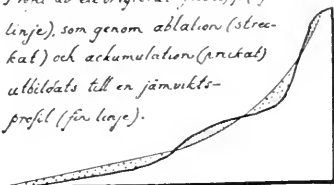 linje), som genom ablation (strec-
kat) och ackumulation (prickat)
utbildats till en jämvikts-
profil (fin linje).